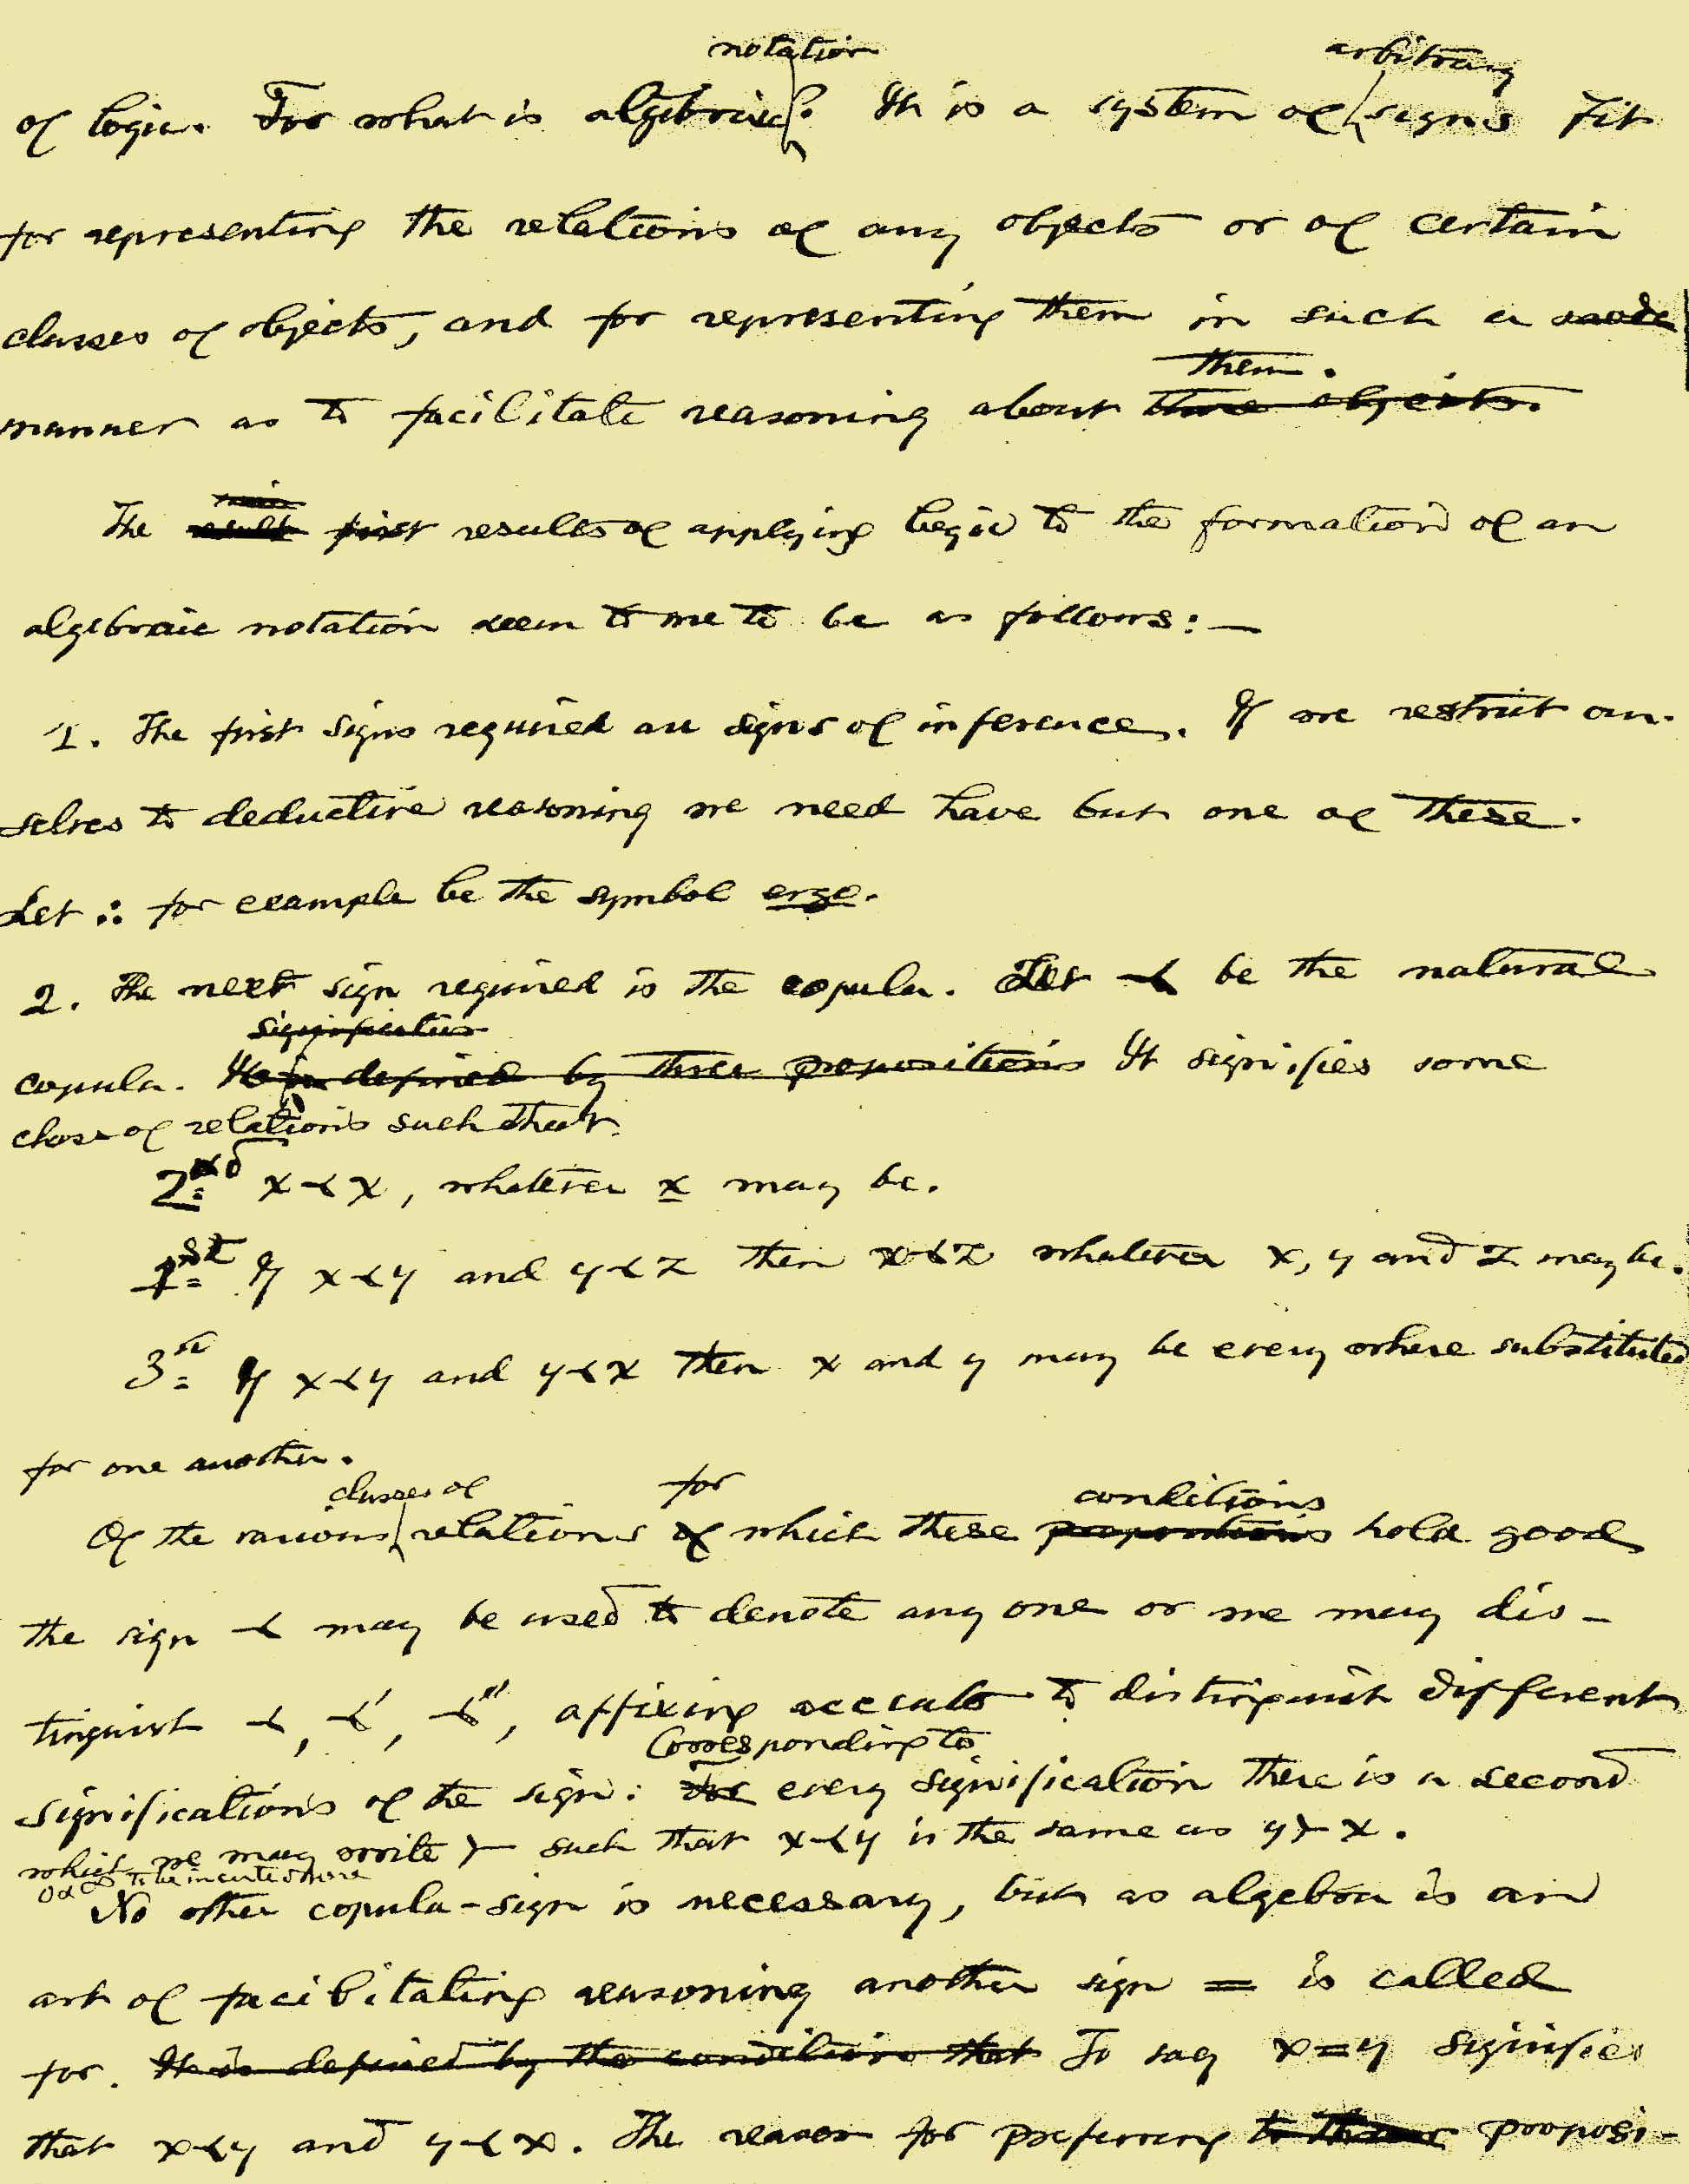 notation arbitrary
of logic. For what is algebraic? It is a system of signs fit
for representing the relations of any objects or of certain
classes of objects, and for representing them in such a mode
them.
manner as to facilitate reasoning about those objects.
The result first results of applying logic to the formation of an
algebraic notation seem to me to be as follows:—
1. The first signs required are signs of inference. If we restrict our-
selves to deductive reasoning we need have but one of these.
Let ∴ for example be the symbol ergo.
2. The next sign required is the copula. Let ⤙ be the natural
signification
copula. It is defined by three propositions It signifies some
class of relations such that
2nd x⤙x, whatever x may be.
1st If x⤙y and y⤙z then x⤙z whatever x, y and z may be.
3rd If x⤙y and y⤙x then x and y may be everywhere substituted
for one another.
classes of for conditions
Of the various relations of which these propositions hold good
the sign ⤙ may be used to denote any one or we may dis-
tinguish ⤙, ⤙′, ⤙″, affixing accents to distinguish different
Corresponding to
significations of the sign: for every signification there is a second
which we may write ⤚ such that x⤙y is the same as y⤚x.
to be inserted here
No other copula-sign is necessary, but as algebra is an
art of facilitating reasoning another sign = is called
for. It is defined by the conditions that To say x=y signifies
that x⤙y and y⤙x. The reason for preferring proposi-